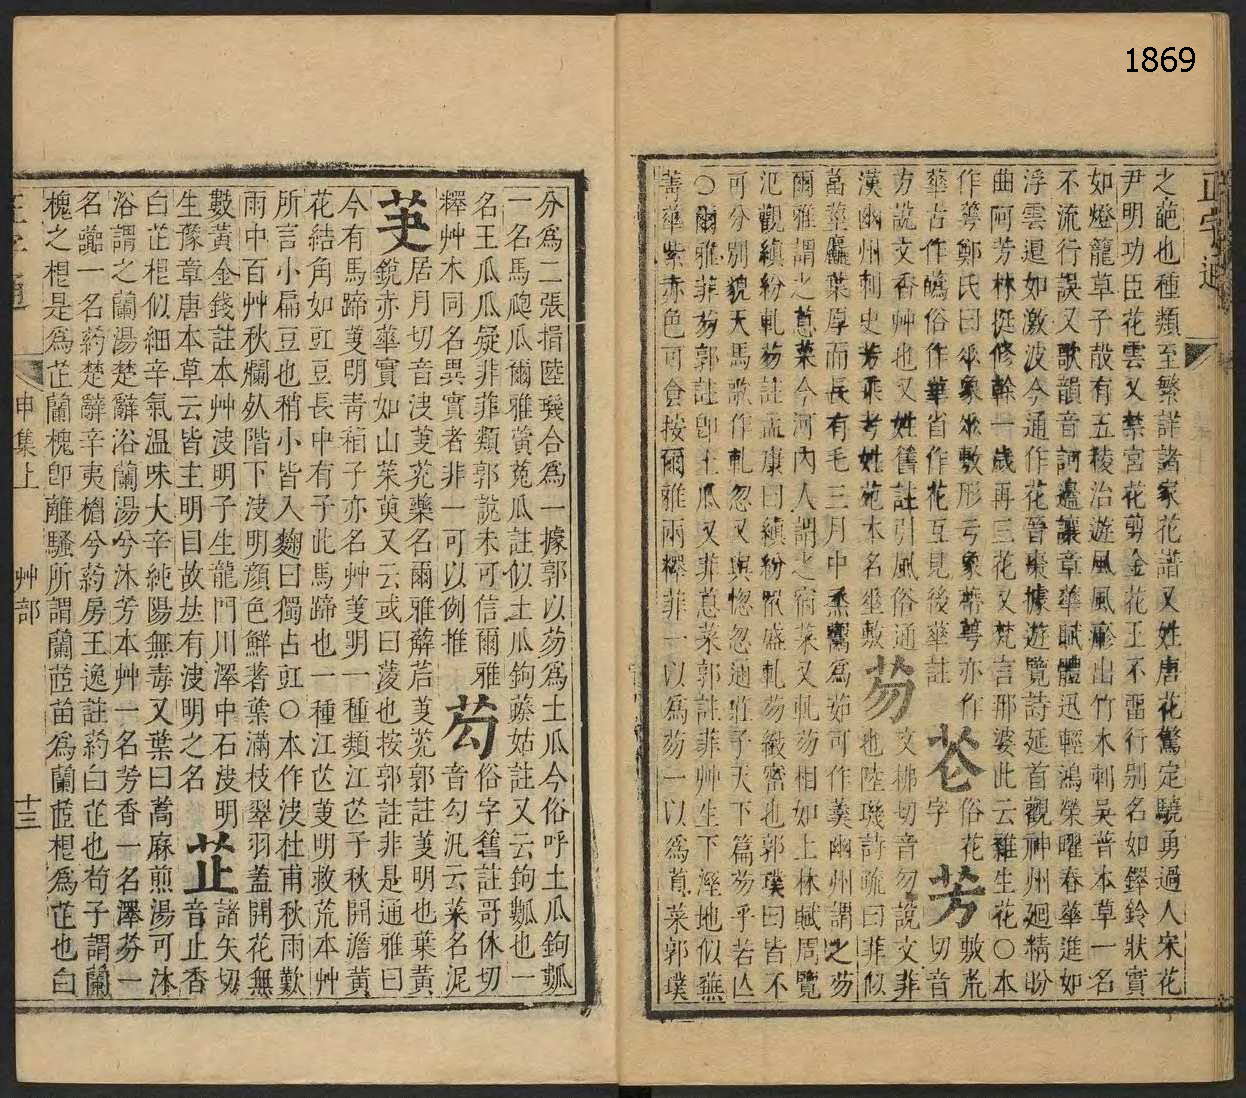 1869
正字通
之葩也種類至繁詳諸家花譜又姓唐花驚定驍勇過人宋花
尹明功臣花雲又禁宮花剪金花王不畱行别名如鐸鈴狀實
如燈龍草子殻有五稜治遊風風瘮出竹木刺吳普本草一名
不流行誤又歌韻音訶邊讓章華賦體迅輕鴻榮曜春華進如
浮雲迴如激波今通作花晉棗據遊覽詩延首觀神州廻精盼
曲阿芳林挺修幹一歲再三花又梵言那婆此云雜生花〇本
作蕚鄭氏曰 象 敷形亏象蔕萼亦作 苍 俗花字 芳 敷
華古作 俗作華省作花互見後華註 切音
方說文香艸也又姓舊註引風俗通 芴 文拂切音勿說文菲
漢幽州刺史芳乘考姓苑本名垂敷 也陸璣詩疏曰菲似
葍莖麤葉厚而長有毛三月中烝鬻爲茹可作羹幽州謂之芴
爾雅謂之蒠菜今河內人謂之宿菜又軋芴相如上林賦周覽
氾觀縝紛軋芴註孟康曰縝紛衆盛軋芴緻密也郭璞曰皆不
可分別貌天馬歌作軋忽又與惚忽通莊子天下篇芴乎若亾
〇爾雅菲芴郭註卽土瓜又菲蒠菜郭註菲艸生下溼地似蕪
菁華紫赤色可食按爾雅兩釋菲一以爲芴一以爲蒠菜郭璞
分爲二張揖陸璣合爲一據郭以芴爲土瓜今俗呼土瓜鉤瓢
一名馬瓟瓜爾雅黃菟瓜註似土瓜鉤藤姑註又云鉤瓢也一
名王瓜瓜疑非菲類郭說未可信爾雅 芶 俗字舊註哥休切
釋艸木同名異實者非一可以例推 音勾汎云菜名泥
芵 居月切音决芵茪藥名爾雅薢茩芵茪郭註芵明也葉黃
銳赤華實如山茱萸又云或曰蔆也按郭註非是通雅曰
今有馬蹄芵明靑葙子亦名艸芵明一種類江芒子秋開澹黃
花結角如豇豆長中有子此馬蹄也一種江芒芵明救荒本艸
所言小扁豆也稍小皆入麴曰獨占豇〇本作決杜甫秋雨歎
雨中百艸秋爛死階下決明顏色鮮著葉滿枝翠羽蓋開花無
數黃金錢註本艸決明子生龍門川澤中石決明 芷 諸矢切
生豫章唐本草云皆主明目故丛有決明之名 音止香
白芷根似細辛氣温味大辛純陽無毒又葉曰蒿麻煎湯可沐
浴謂之蘭湯楚辭浴蘭湯兮沐芳本艸一名芳香一名澤芬一
名虈一名葯楚辭辛夷楣兮葯房王逸註葯白芷也荀子謂蘭
槐之根是爲芷蘭槐卽離騷所謂蘭茝苗爲蘭茝根爲芷也白
申集上 艸部 十三